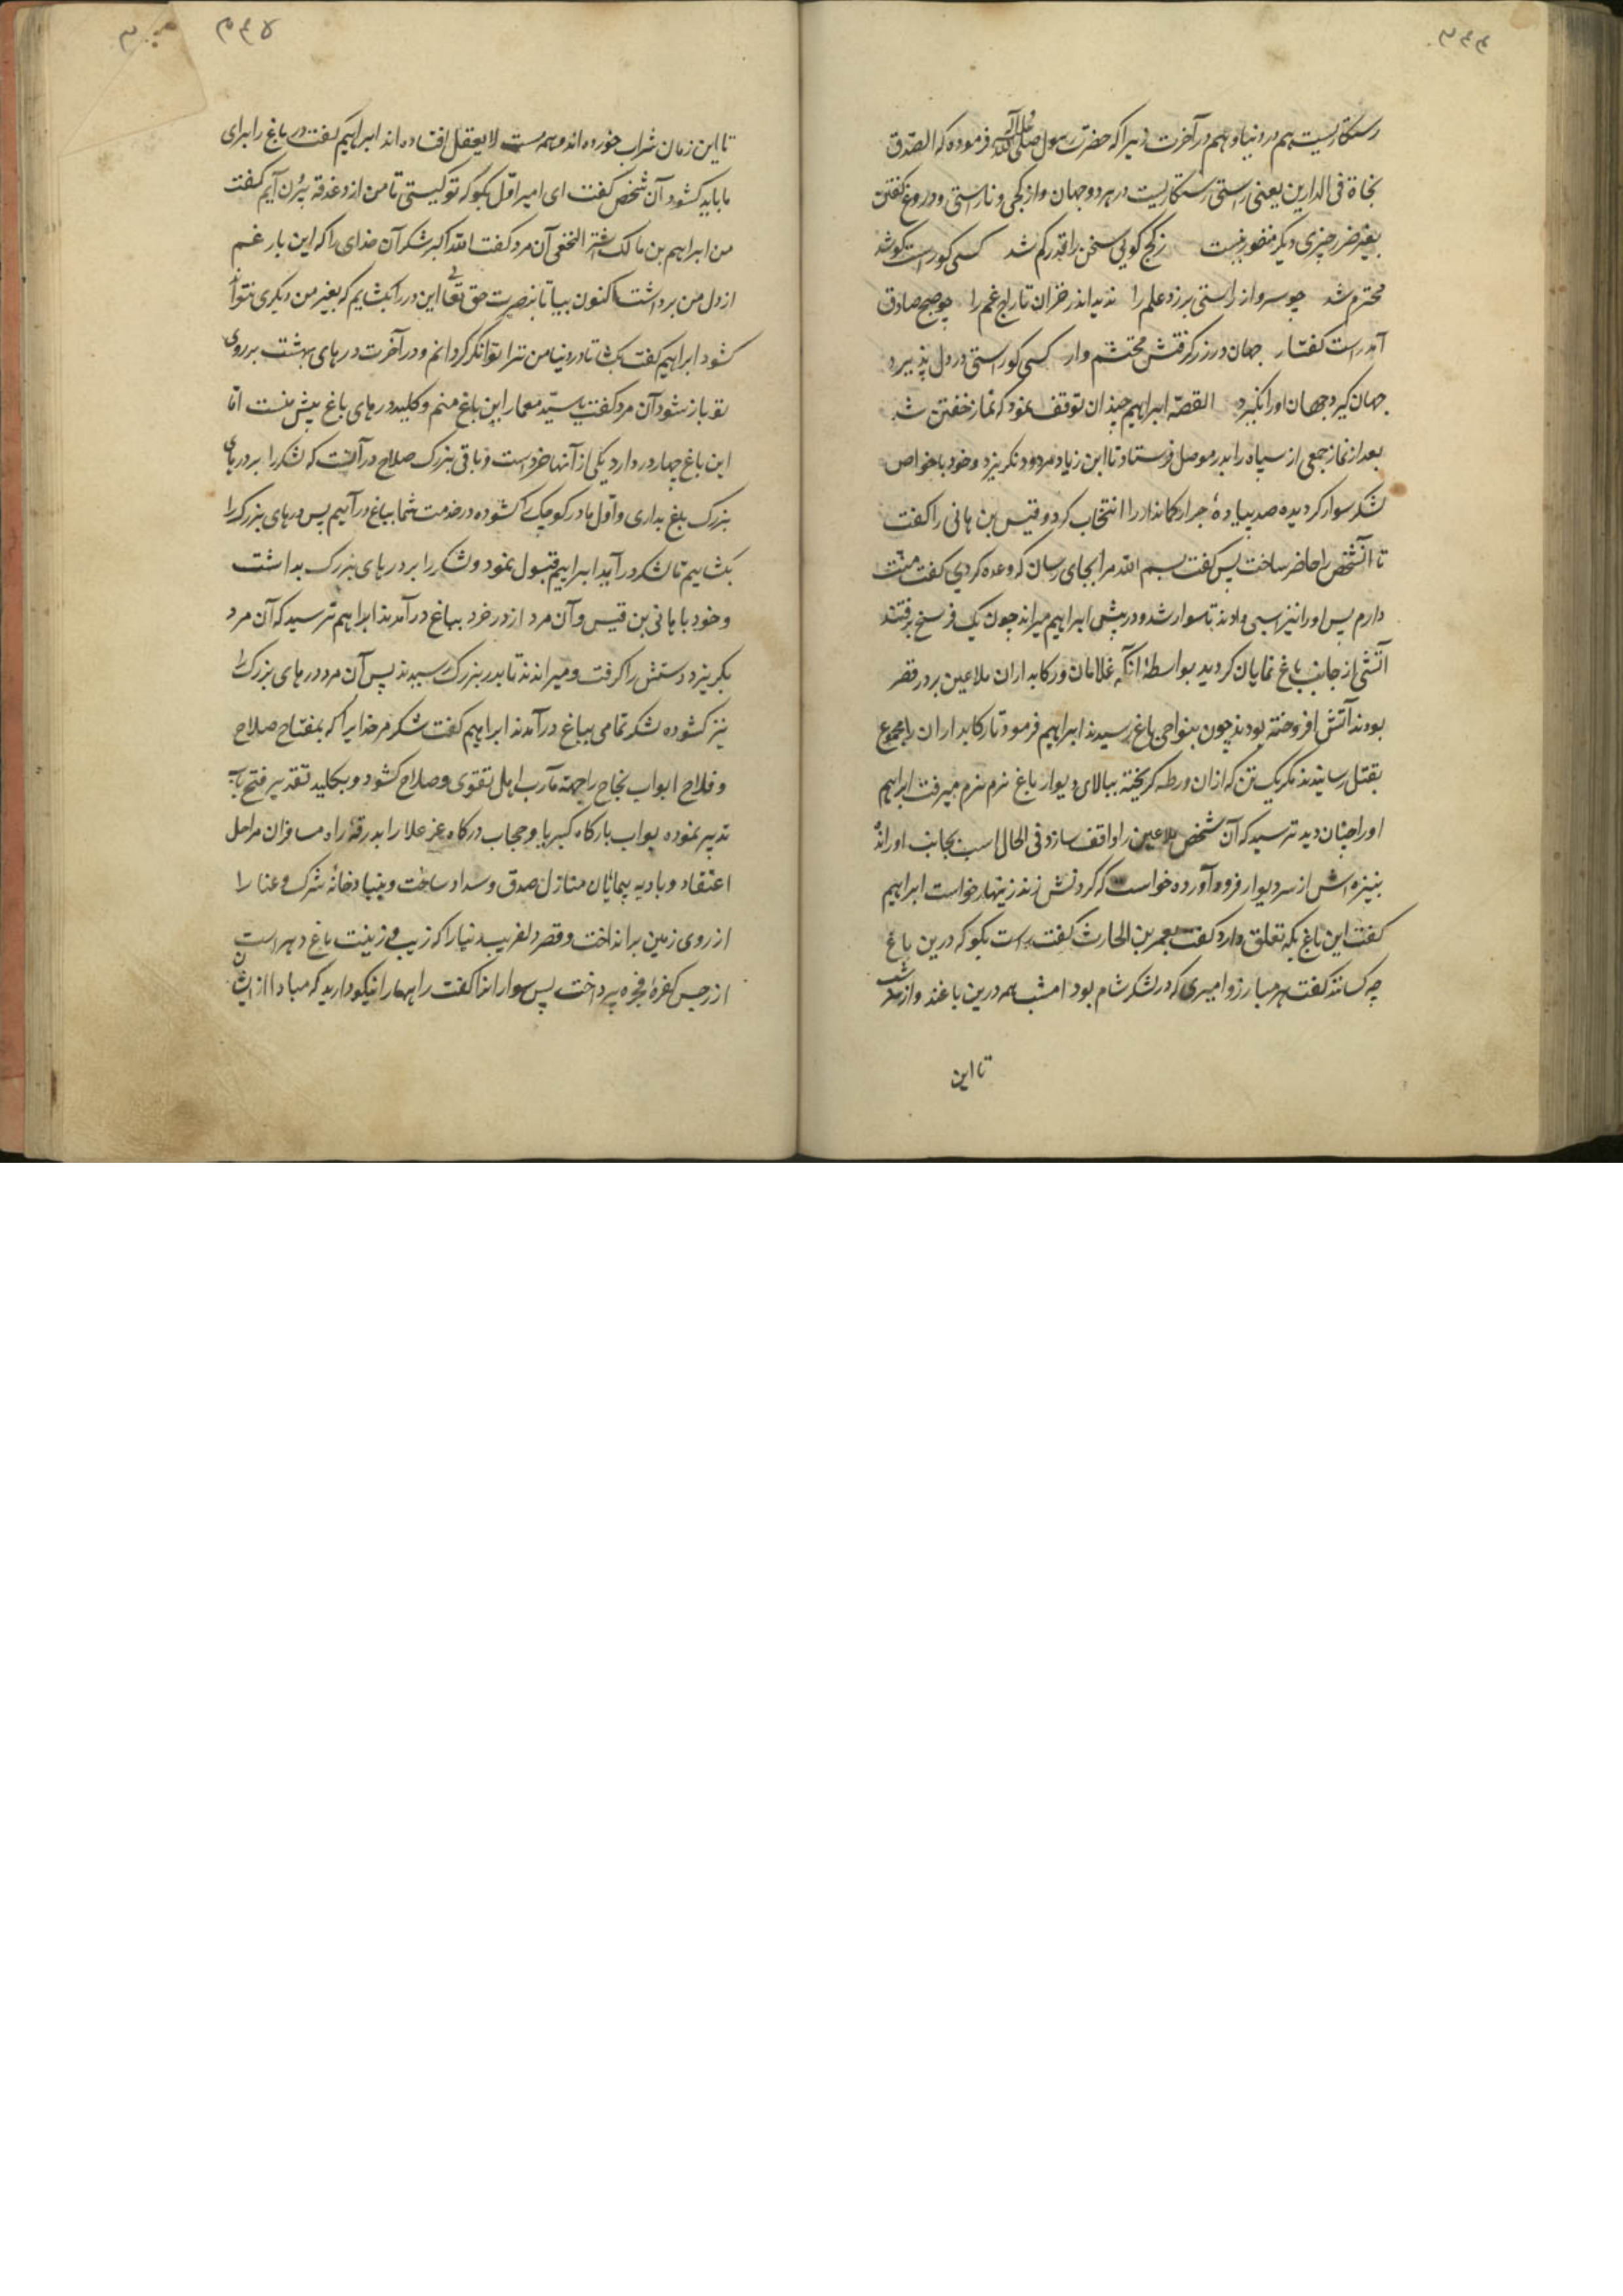 رستکاریست هم در دنیا و هم در آخرت زیرا که حضرت رسول صلی الله علیه و آله فرموده که الصّدق
نجاة فی الدارین یعنی راستی رستکاریست در هر دو جهان و از کجی و ناراستی و دروغ کفتن
بغیر ضرر چیزی دیکر منظور نیست زکج کویی سخن را قدر کم شد کسی کو راست کو شد
محترم شد چو سرو از راستی برزد علم را ندید اندر خزان تاراج غم را چو صبح صادق
آمد راست کفتار جهان در زر کرفتش محتشم وار کسی کو راستی در دل پذیرد
جهان کیرد جهان او را نکیرد القصّه ابراهیم چندان توقف نمود که نماز خفتن شد
بعد از نماز جمعی از سپاه را بدر موصل فرستاد تا ابن زیاد مردود نکریزد و خود با خواص
لشکر سوار کردیده صد پیاده جرار کماندار را انتخاب کرد و قیس بن هانی را کفت
تا آنشخص را حاضر ساخت پس کفت بسم الله مرا بجای رسان که وعده کردی کفت منت
دارم پس او را نیز اسبی دادند تا سوار شد و در پیش ابراهیم میراند چون یک فرسخ برفتند
آتشی از جانب باغ نمایان کردید بواسطه آنکه غلامان و رکابداران ملاعین بر در قصر
بودند آتش افروخته بودند چون بنواحی باغ رسیدند ابراهیم فرمود تا رکابداران را مجموع
بقتل رسانیدند مکر یک تن که ازان ورطه کریخته ببالای دیوار باغ نرم نرم میرفت ابراهیم
او را چنان دید ترسید که آن شخص ملاعین را واقف سازد فی الحال اسب بجانب او راند
بنیزه اش از سر دیوار فرود آورده خواست که کردنش زند زینهار خواست ابراهیم
کفت این باغ بکه تعلق دارد کفت بعمر بن الحارث کفت راست بکو که درین باغ
چه کسانند کفت هر مبارز و امیری که در لشکر شام بود امشب همه درین باغند و از سر شب
تا این
تا این زمان شراب خورده اند و همه مست لایعقل افتاده اند ابراهیم کفت در باغ را برای
ما باید کشود آن شخص کفت ای امیر اوّل بکو که تو کیستی تا من از دغدغه بیرون آیم کفت
من ابراهیم بن مالک اشتر النخعی آن مرد کفت الله اکبر شکر آن خدای را که این بار غم
از دل من برداشت اکنون بیا تا بنصرت حق تعالی این در را بکشایم که بغیر من دیکری نتواند
کشود ابراهیم کفت بکشا تا در دنیا من ترا توانکر کردانم و در آخرت درهای بهشت بر روی
تو باز شود آن مرد کفت یا سیّد معمار این باغ منم و کلید درهای باغ پیش منست امّا
این باغ چهار در دارد یکی از آنها خردست و باقی بزرک صلاح در آنست که لشکر را بر درهای
بزرک باغ بداری و اوّل ما در کوچک را کشوده در خدمت شما بباغ درآییم پس درهای بزرک را
بکشاییم تا لشکر درآید ابراهیم قبول نمود و لشکر را بر درهای بزرک بداشت
و خود با هانی بن قیس و آن مرد از در خرد بباغ درآمدند ابراهیم ترسید که آن مرد
بکریزد دستش را کرفت و میراندند تا بدر بزرک رسیدند پس آن مرد درهای بزرک را
نیز کشوده لشکر تمامی بباغ درآمدند ابراهیم کفت شکر مر خدایرا که بمفتاح صلاح
و فلاح ابواب نجاح را جهة مآرب اهل تقوی و صلاح کشود و بکلید تقدیر فتح باب
تدبیر نموده بواب بارکاه کبریا و حجاب درکاه عز علا را بدرقه راه مسافران مراحل
اعتقاد و بادیه پیمایان منازل صدق و سداد ساخت و بنیاد خانه شرک و عنا را
از روی زمین برانداخت و قصر دلفریب دنیا را که زیب و زینت باغ دهر است
از رجس کفره فجره پرداخت پس سوارانرا کفت راهها را نیکو دارید که مبادا از ایشان